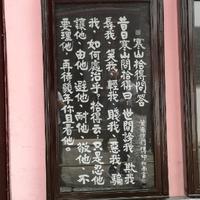 寒山拾得問答
昔日寒山問拾得曰、世間謗我、欺我
辱我、笑我、輕我、賤我、惡我、騙
我、如何處治乎、拾得云、只是忍他
讓他、由他、避他、耐他、敬他、不
要理他、再待幾年你且看他。